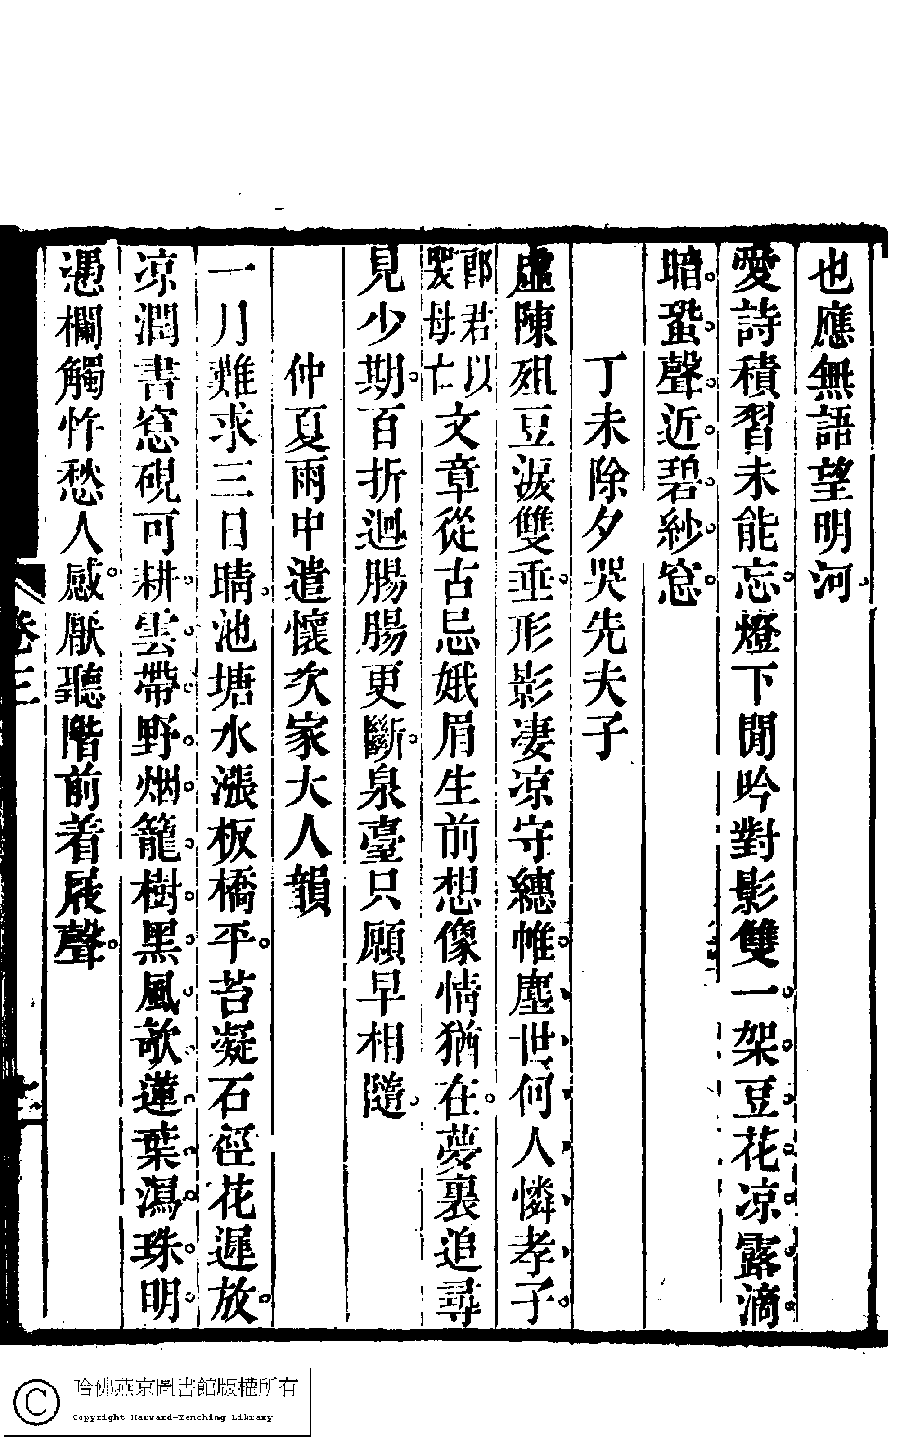 也應無語望明河
愛詩積習未能忘燈下閒吟對影雙一架豆花凉露滴
暗蛩聲近碧紗窓
丁未除夕哭先夫子
虛陳爼豆淚雙垂形影凄凉守繐帷塵世何人憐孝子
郎君以哭母亡文章從古忌娥眉生前想像情猶在夢裏追尋
見少期百折迴腸腸更斷泉臺只願早相隨
仲夏雨中遣懷次家大人韻
一月難求三日晴池塘水漲板橋平苔凝石徑花遲放
凉潤書窓硯可耕雲帶野烟籠樹黑風欹蓮葉瀉珠明
憑欄觸忤愁人感厭聽階前着屐聲
卷三
哈佛燕京圖書館版權所有
Copyright Harvard-Yenching Library